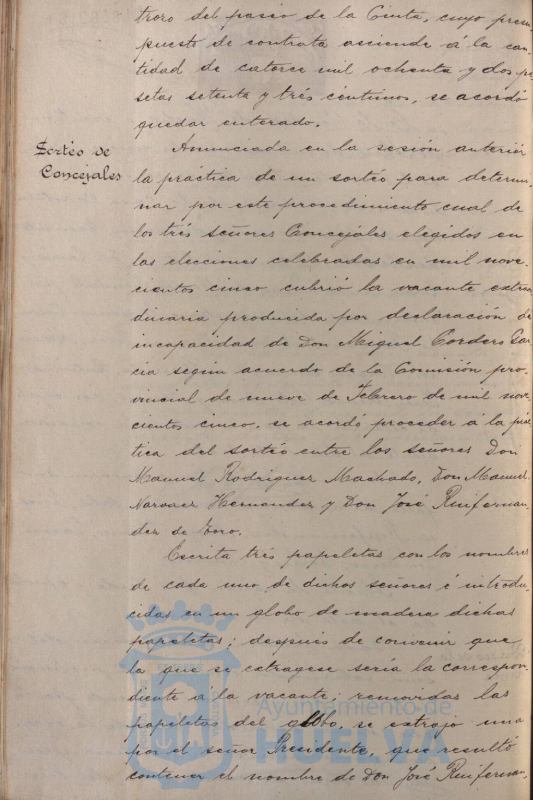 troro del paseo de la Cinta, cuyo presu-
puesto de contrata asciende á la can-
tidad de catorce mil ochenta y dos pe-
setas setenta y trés céntimos, se acordó
quedar enterado.
Sorteo de
Concejales
Anunciada en la sesión anterior
la práctica de un sorteo para determi-
nar por este procedimiento cual de
los trés señores Concejales elegidos en
las elecciones celebradas en mil nove-
cientos cinco cubrió la vacante extraor-
dinaria producida por declaración de
incapacidad de Don Miguel Cordero Gar-
cia según acuerdo de la Comisión pro-
vincial de nueve de Febrero de mil nove-
cientos cinco, se acordó proceder á la prác-
tica del sorteo entre los señores Don
Manuel Rodriguez Machado, Don Manuel
Narvaez Hernandez y Don José Ruifernan-
dez de Toro.
Escrita trés papeletas con los nombres
de cada uno de dichos señores é introdu-
cidas en un globo de madera dichas
papeletas; después de convenir que
la que se extragese sería la correspon-
diente a la vacante; removidas las
papeletas del globo, se extrajo una
por el señor Presidente, que resultó
contener el nombre de Don José Ruifernan-
Ayuntamiento de
HUELVA